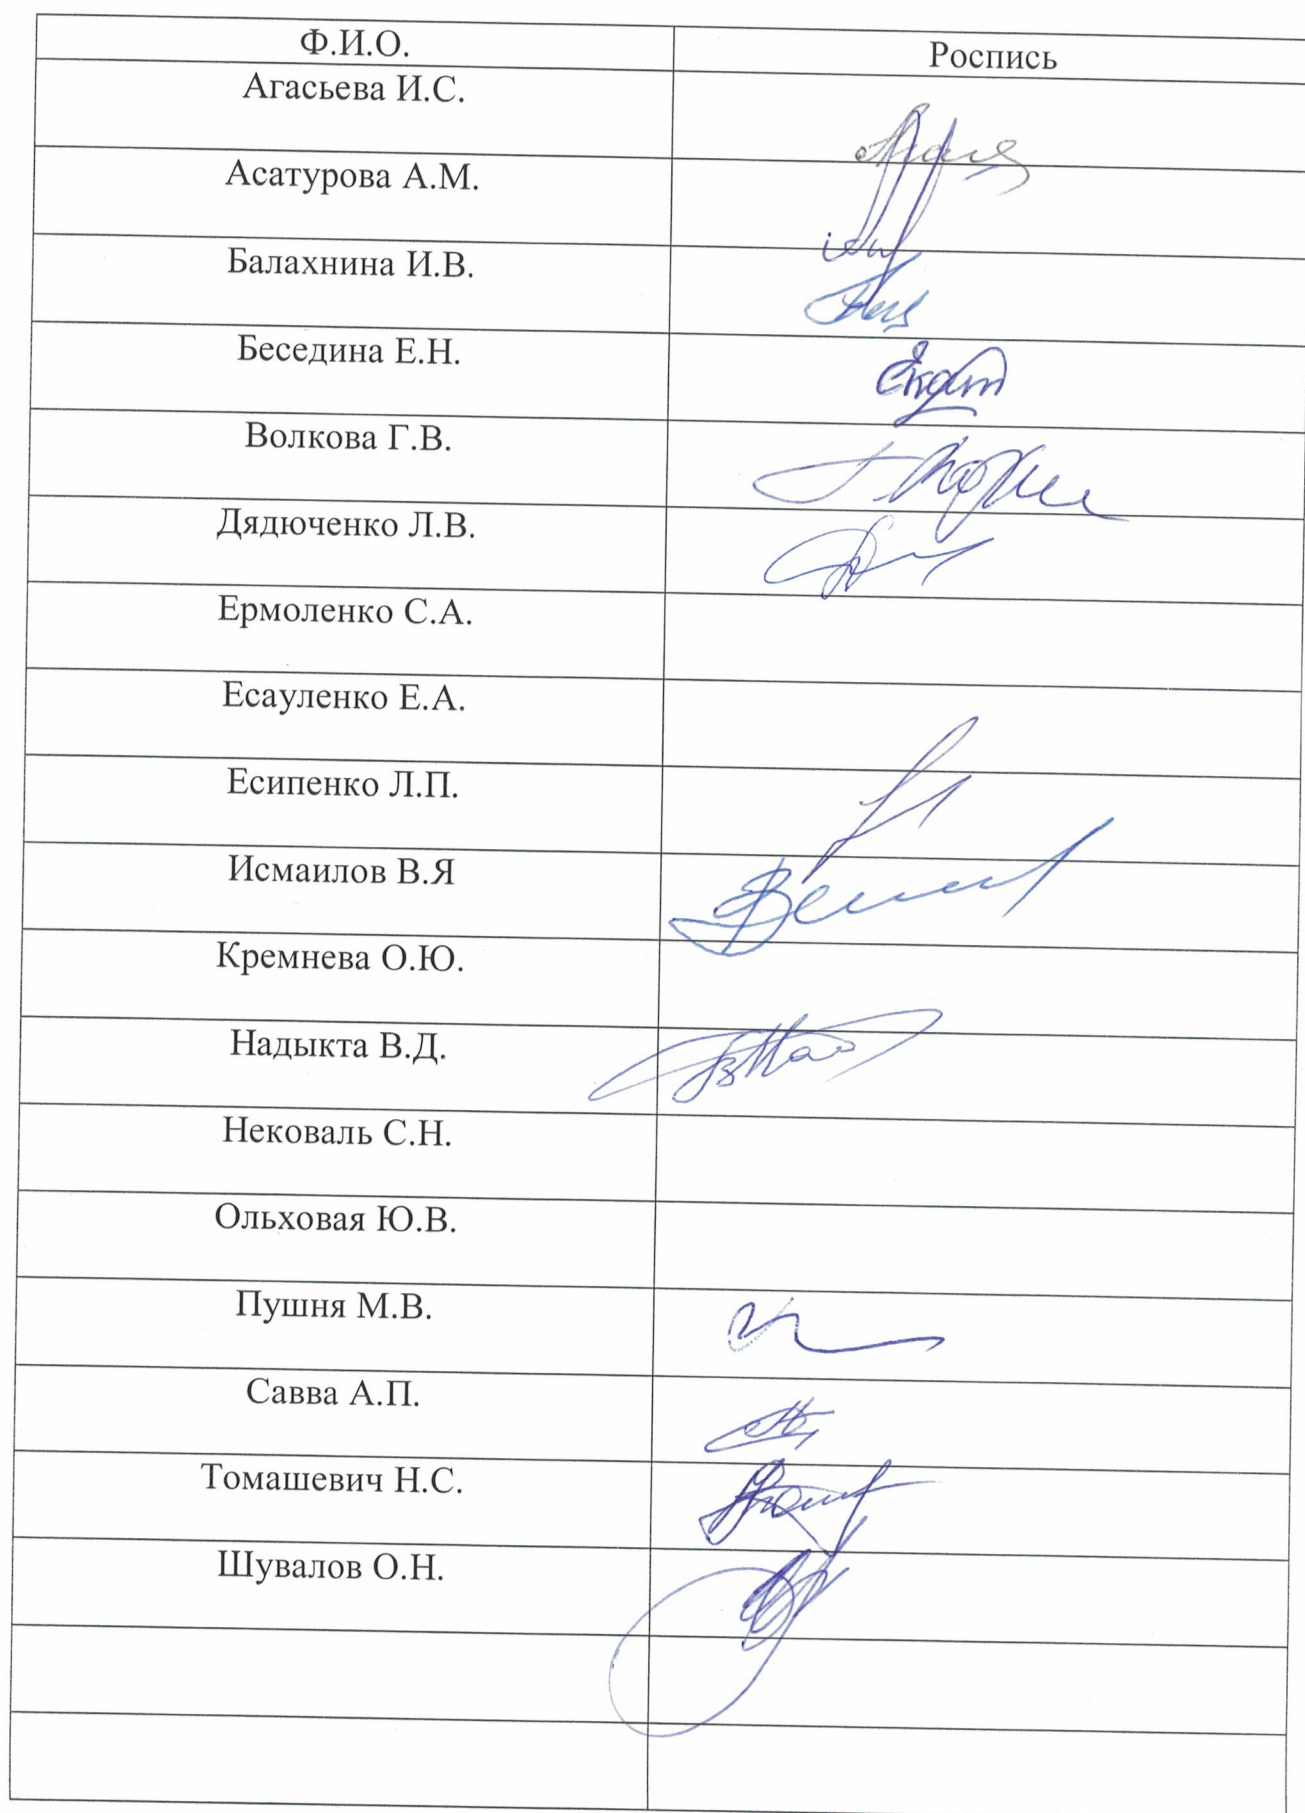 Ф.И.О.
Роспись
Агасьева И.С.
Асатурова А.М.
Балахнина И.В.
Беседина Е.Н.
Волкова Г.В.
Дядюченко Л.В.
Ермоленко С.А.
Есауленко Е.А.
Есипенко Л.П.
Исмаилов В.Я
Кремнева О.Ю.
Надыкта В.Д.
Нековаль С.Н.
Ольховая Ю.В.
Пушня М.В.
Савва А.П.
Томашевич Н.С.
Шувалов О.Н.